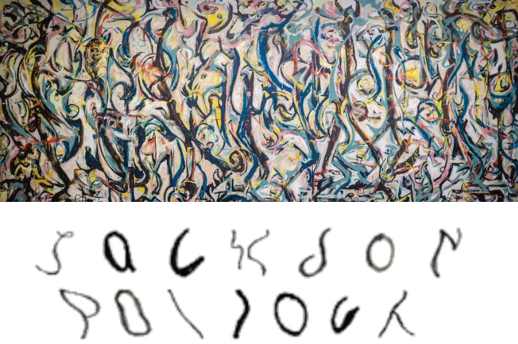 JaCKSON
POllOCK